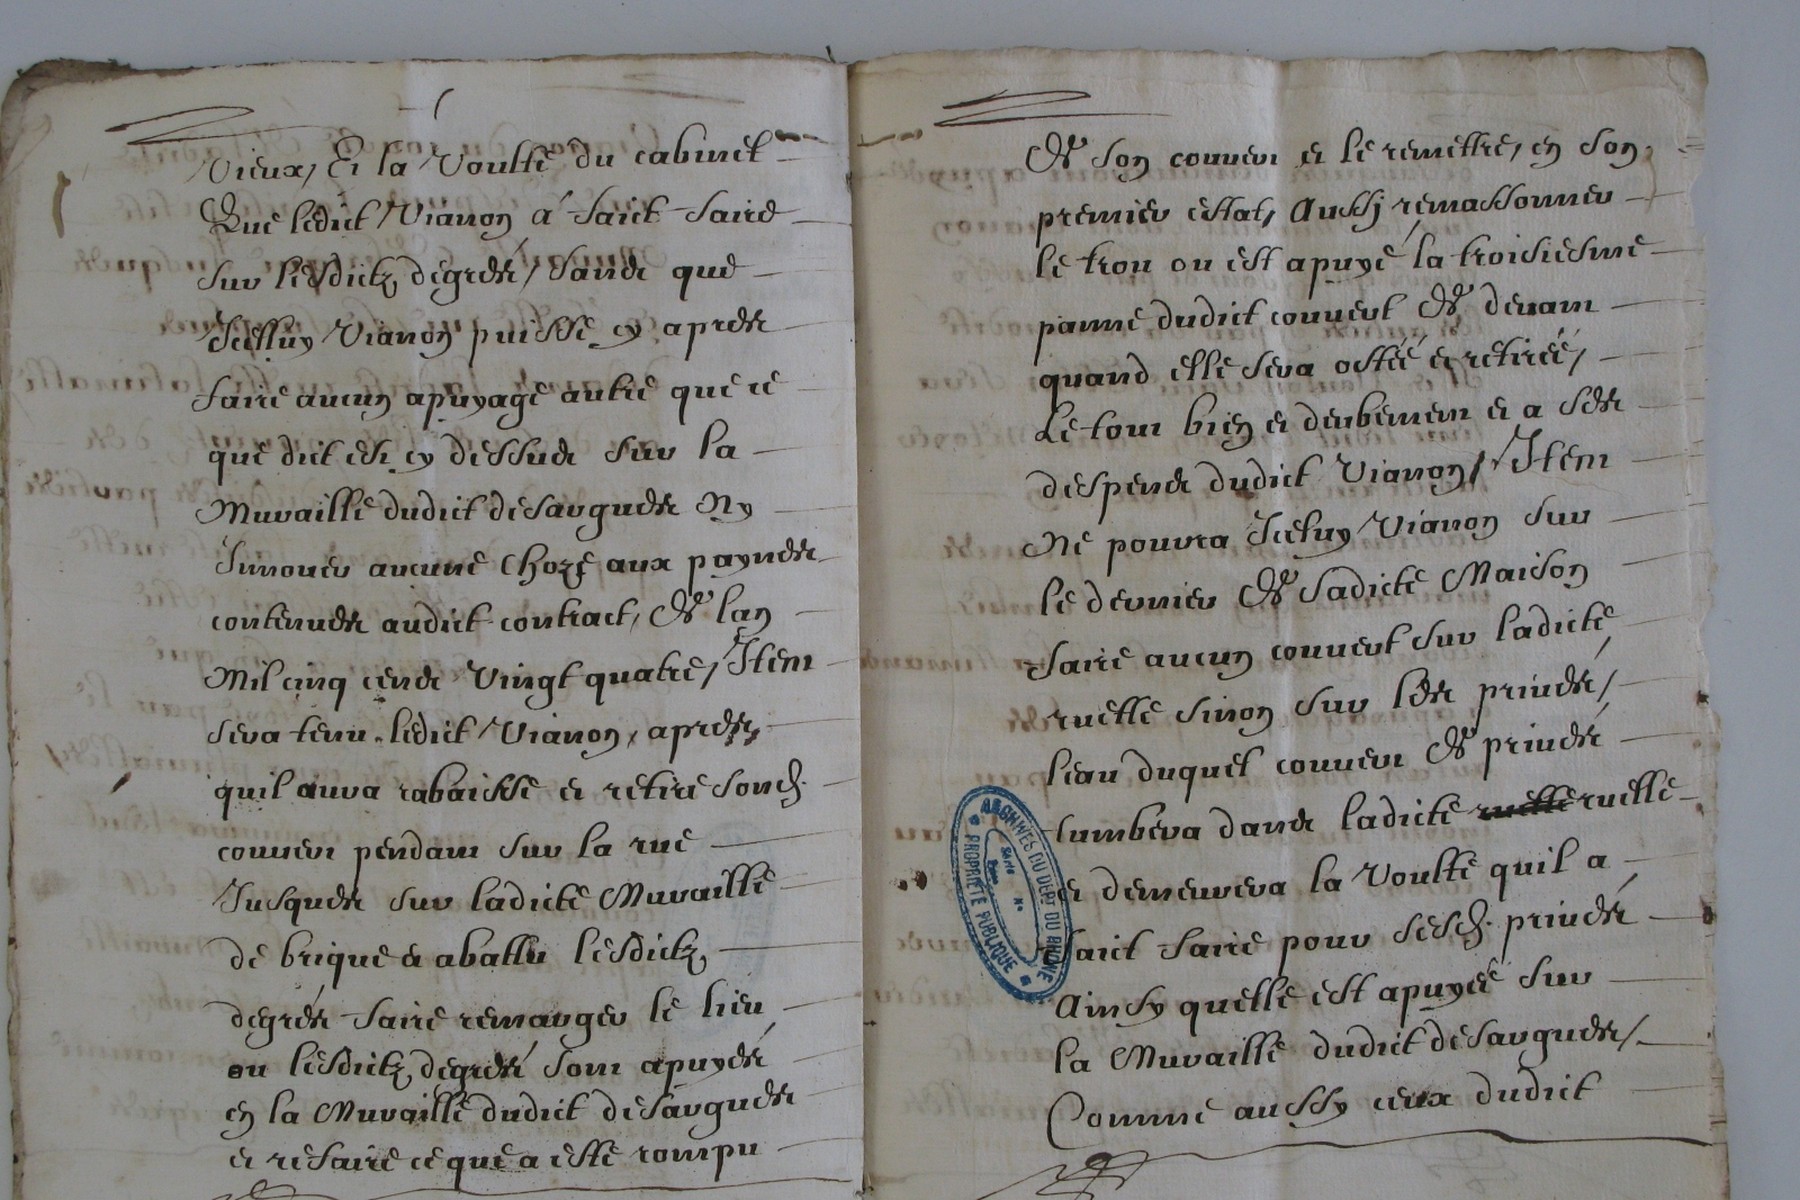 Vieux, Et la Voulte du cabinet
Que ledict Vianon a faict faire
sur lesdictz degres, sans que
Icelluy Vianon puisse cy apres
faire aucun apuyage autre que ce
que dict est cy dessus sur la
Muraille dudict desargues Ny
Innover aucune choze aux paynes
contenues audict contract, de lan
Mil cinq cens Vingt quatre, Item
sera tenu ledict Vianon, apres
quil aura rabaisse et retire sond.
couvert pendant sur la rue
Jusques sur ladicte Muraille
de brique et abattu lesdictz
degres faire remarger le lieu
ou lesdictz degres sont apuyes
en la Muraille dudict desargues
et refaire ce que a este rompu
de son couvert et le remettre, en son
premier estat, Aussj remassonner
le trou ou est apuyé la troisiesme
panne dudict couvert de devant
quand elle sera ostée et retirée,
Le tout bien et deubement et a ses
despens dudict Vianon, Item
Ne pourra Icelluy Vianon sur
le dernier de sadicte Maison
faire aucun couvert sur ladicte
ruelle sinon sur les privés,
leau duquel couvert de privés
tumbera dans ladicte ruelle ruelle
et demeurera la Voulte quil a
faict faire pour sesd. privés
Ainsy quelle est apuyée sur
la Muraille dudict desargues,
Comme aussy ceux dudict
ARCHIVES DU DÉPT DU RHONE
PROPRIÉTÉ PUBLIQUE
Série
No